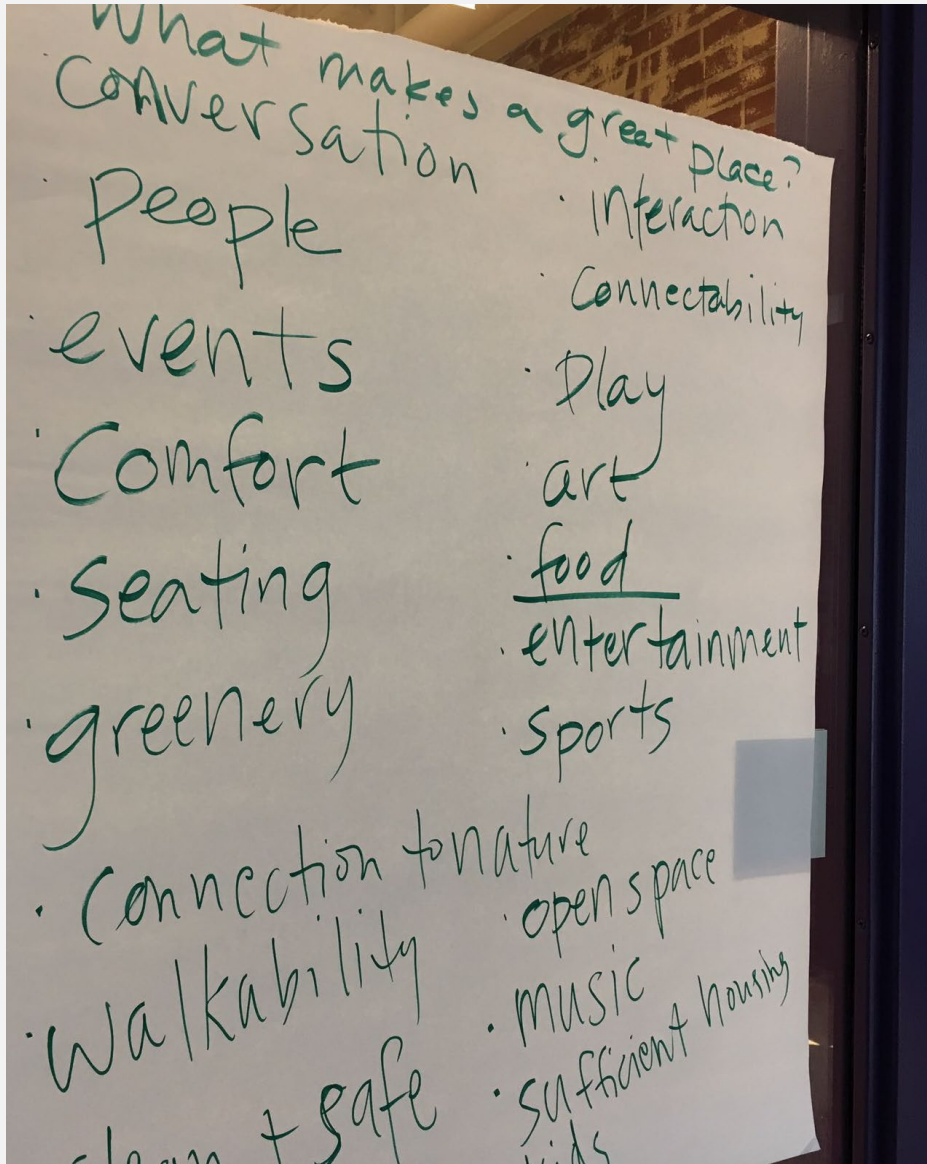 What makes a great place?
Conversation
· people
· events
· Comfort
· seating
· greenery
· Connection to nature
· Walkability
clean + safe
· interaction
· Connectability
· Play
· art
· food
· entertainment
· sports
· open space
· music
· sufficient housing
kids